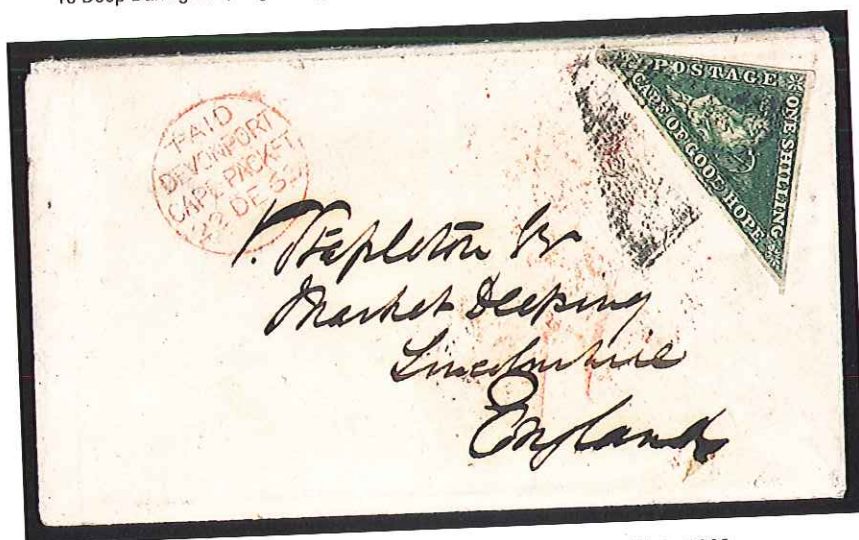 PAID
DEVONPORT
CAPE PACKET
22 DE 5
POSTAGE
ONE SHILLING
CAPE OF GOOD HOPE
Stapleton
Market Deeping
Lincolnshire
England